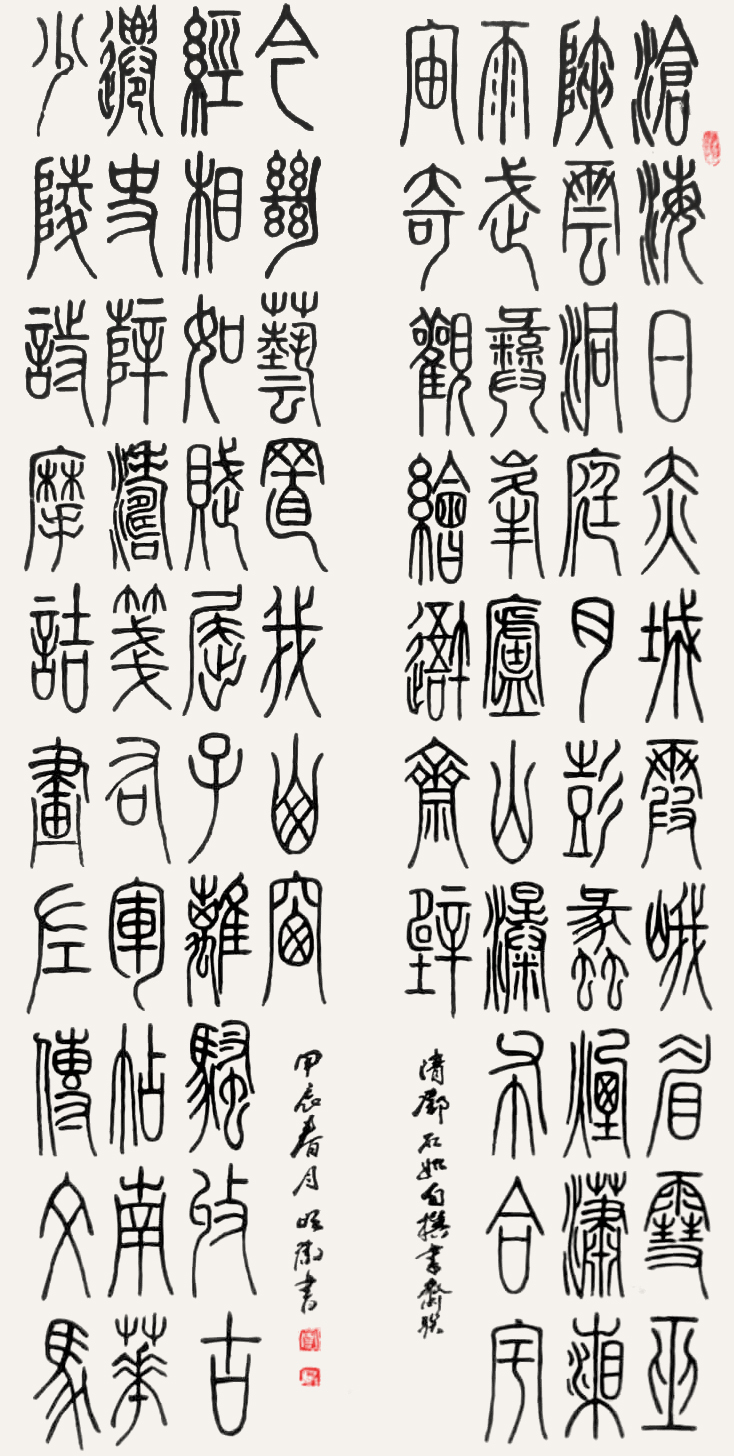 滄海日赤城霞峨眉雪巫
陜雲洞庭月彭蠡煙瀟湘
雨武彝峯廬山瀑布合宇
宙奇觀繪吾齋壁
清鄧石如自撰書齋聯
少陵詩摩詰畫左傳文馬
遷史薛濤箋右軍帖南華
經相如賦屈子離騷收古
今絕藝置我山窗
甲辰春月 書